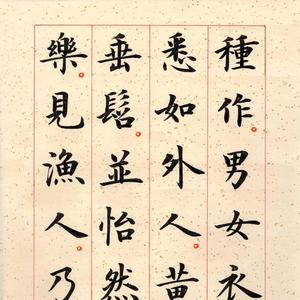 種作男女衣
悉如外人黃
垂髫並怡然
樂見漁人乃